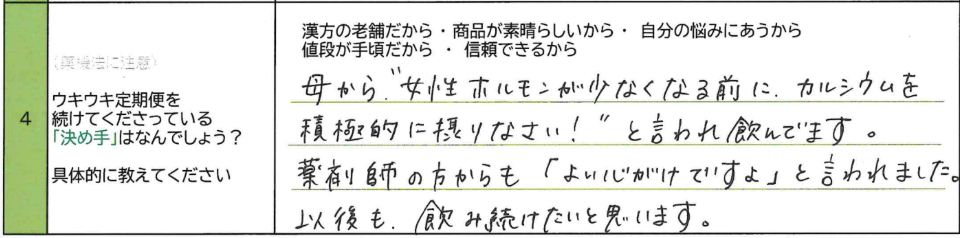 漢方の老舗だから・商品が素晴らしいから・ 自分の悩みにあうから
値段が手頃だから ・ 信頼できるから
(薬機法に注意)
4
ウキウキ定期便を
続けてくださっている
「決め手」はなんでしょう？
具体的に教えてください
母から、"女性ホルモンが少なくなる前に、カルシウムを
積極的に摂りなさい！"と言われ飲んでます。
薬剤師の方からも「よい心がけですよ」と言われました。
以後も、飲み続けたいと思います。